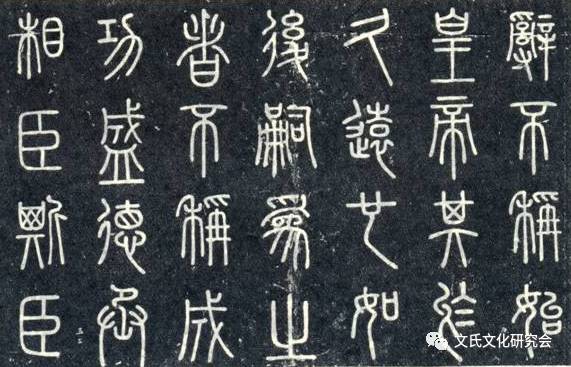 辭不稱始
皇帝其於
久遠也如
後嗣為之
者不稱成
功盛德丞
相臣斯臣
文氏文化研究会